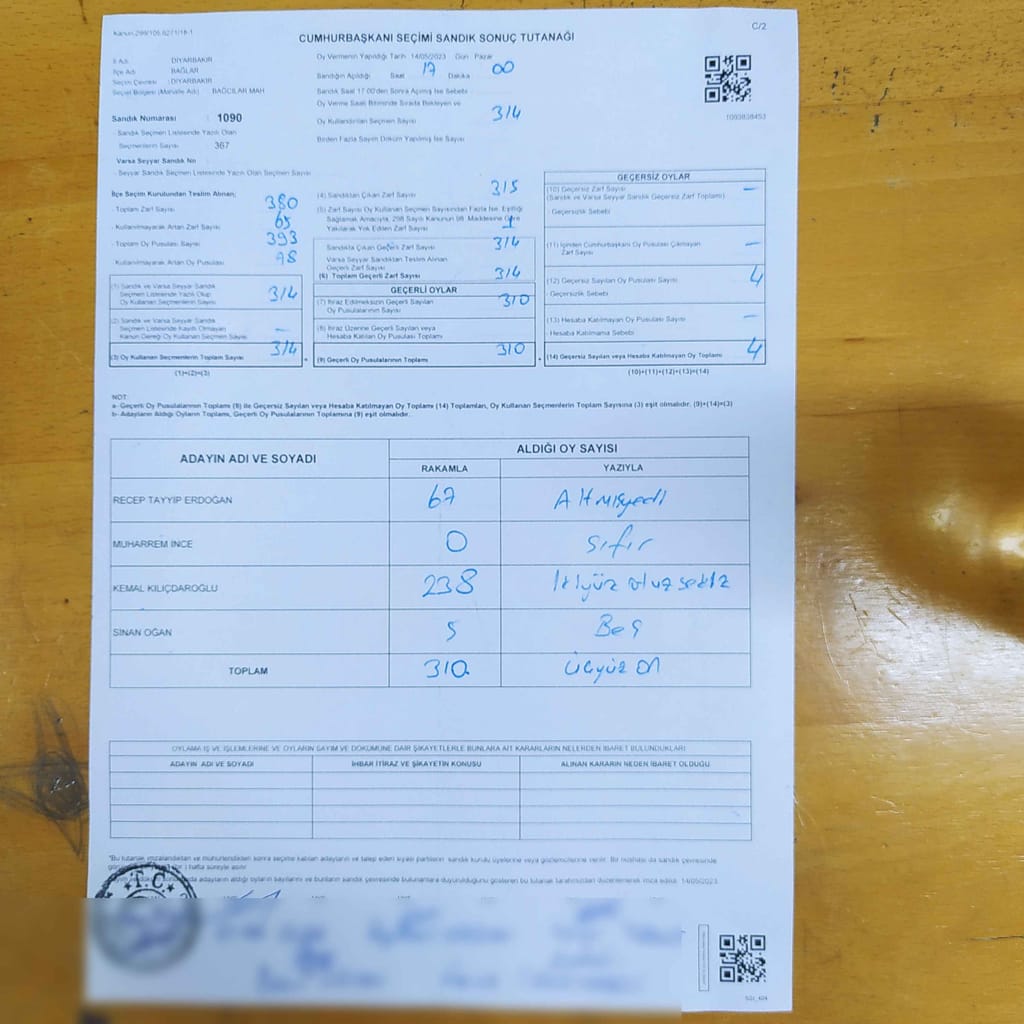 Kanun:298/105,6271/18-1
C/2
CUMHURBAŞKANI SEÇİMİ SANDIK SONUÇ TUTANAĞI
İl Adı : DİYARBAKIR
İlçe Adı : BAĞLAR
Seçim Çevresi : DİYARBAKIR
Seçim Bölgesi (Mahalle Adı) BAĞCILAR MAH
Sandık Numarası : 1090
Sandık Seçmen Listesinde Yazılı Olan
Seçmenlerin Sayısı : 367
Varsa Seyyar Sandık No
Seyyar Sandık Seçmen Listesinde Yazılı Olan Seçmen Sayısı
Oy Vermenin Yapıldığı Tarih 14/05/2023 Gün Pazar
Sandığın Açıldığı Saat 17 Dakika 00
Sandık Saat 17.00'den Sonra Açılmış İse Sebebi
Oy Verme Saati Bitiminde Sırada Bekleyen ve
Oy Kullandırılan Seçmen Sayısı 314
Birden Fazla Sayım Döküm Yapılmış İse Sayısı
1093838453
İlçe Seçim Kurulundan Teslim Alınan;
- Toplam Zarf Sayısı 380
- Kullanılmayarak Artan Zarf Sayısı 65
- Toplam Oy Pusulası Sayısı 393
- Kullanılmayarak Artan Oy Pusulası
(1) Sandık ve Varsa Seyyar Sandık
Seçmen Listesinde Yazılı Olup
Oy Kullanan Seçmenlerin Sayısı 314
(2) Sandık ve Varsa Seyyar Sandık
Seçmen Listesinde Kayıtlı Olmayan
Kanun Gereği Oy Kullanan Seçmen Sayısı —
(3) Oy Kullanan Seçmenlerin Toplam Sayısı 314
(1)+(2)=(3)
(4) Sandıktan Çıkan Zarf Sayısı 315
(5) Zarf Sayısı Oy Kullanan Seçmen Sayısından Fazla İse, Eşitliği
Sağlamak Amacıyla, 298 Sayılı Kanunun 98. Maddesine Göre
Yakılarak Yok Edilen Zarf Sayısı 1
Sandıkta Çıkan Geçerli Zarf Sayısı 314
Varsa Seyyar Sandıktan Teslim Alınan
Geçerli Zarf Sayısı
(6) Toplam Geçerli Zarf Sayısı 314
GEÇERLİ OYLAR
(7) İtiraz Edilmeksizin Geçerli Sayılan
Oy Pusulalarının Sayısı 310
(8) İtiraz Üzerine Geçerli Sayılan veya
Hesaba Katılan Oy Pusulası Sayısı
(9) Geçerli Oy Pusulalarının Toplamı 310
GEÇERSİZ OYLAR
(10) Geçersiz Zarf Sayısı —
(Sandık ve Varsa Seyyar Sandık Geçersiz Zarf Toplamı)
- Geçersizlik Sebebi
(11) İçinden Cumhurbaşkanı Oy Pusulası Çıkmayan
Zarf Sayısı —
(12) Geçersiz Sayılan Oy Pusulası Sayısı 4
- Geçersizlik Sebebi
(13) Hesaba Katılmayan Oy Pusulası Sayısı —
- Hesaba Katılmama Sebebi
(14) Geçersiz Sayılan veya Hesaba Katılmayan Oy Toplamı 4
(10)+(11)+(12)+(13)=(14)
NOT:
a- Geçerli Oy Pusulalarının Toplamı (9) ile Geçersiz Sayılan veya Hesaba Katılmayan Oy Toplamı (14) Toplamları, Oy Kullanan Seçmenlerin Toplam Sayısına (3) eşit olmalıdır. (9)+(14)=(3)
b- Adayların Aldığı Oyların Toplamı, Geçerli Oy Pusulalarının Toplamına (9) eşit olmalıdır.
ADAYIN ADI VE SOYADI ALDIĞI OY SAYISI
RAKAMLA YAZIYLA
RECEP TAYYİP ERDOĞAN 67 Altmışyedi
MUHARREM İNCE 0 sıfır
KEMAL KILIÇDAROĞLU 238 İkiyüz otuz sekiz
SİNAN OĞAN 5 Beş
TOPLAM 310 üçyüz on
OYLAMA İŞ VE İŞLEMLERİNE VE OYLARIN SAYIM VE DÖKÜMÜNE DAİR ŞİKAYETLERLE BUNLARA AİT KARARLARIN NELERDEN İBARET BULUNDUKLARI
ADAYIN ADI VE SOYADI İHBAR İTİRAZ VE ŞİKAYETİN KONUSU ALINAN KARARIN NEDEN İBARET OLDUĞU
"Bu tutanak imzalandıktan ve mühürlendikten sonra seçime katılan adayların ve talep eden siyasi partilerin sandık kurulu üyelerine veya gözlemcilerine verilir. Bir nüshası da sandık çevresinde
hafta süreyle asılır
adayların aldığı oyların sayılarını ve bunların sandık çevresinde bulunanlara duyurulduğunu gösteren bu tutanak tarafımızdan düzenlenerek imza edildi. 14/05/2023
T.C.